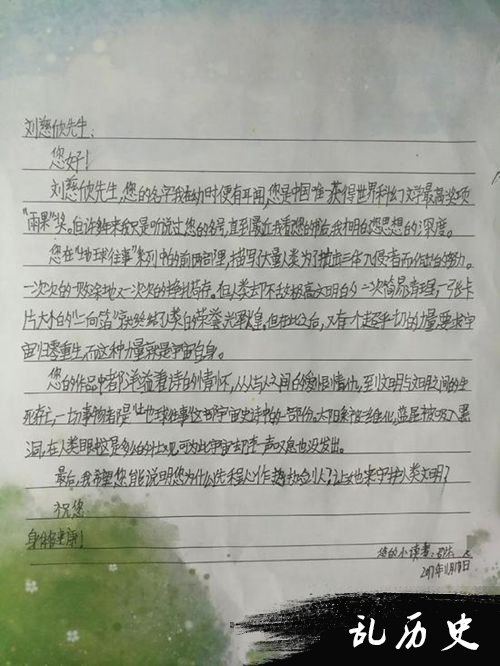 刘慈欣先生:
您好!
刘慈欣先生,您的名字我在幼时便有耳闻,您是中国唯一获得世界科幻文学最高奖项
"雨果"奖。但许多年来我只是听说过您的名号,直到最近我看您的书后,我才明白您思想的深度。
您在"地球往事"系列中的前两部里,描写了大量人类为了抵抗三体入侵者而作出的努力。
一次次的一败涂地又一次次的。但人类却不敌极高文明的一次简易清理,一张卡
片大小的"二向箔"人类的荣誉,光辉。但在此之后,又有一个超乎一切的力量,要求宇
宙归零重生,而这种力量就是宇宙自身。
您的作品中者都洋溢着诗的情怀,从人与人之间的爱恨情仇,至到文明与文明之间的生
死存亡,一切事物都是"地球往事"这部宇宙史诗中的一部份。太阳系被二维化,蓝星被吸入黑
洞,在人类眼这是多么的壮观,可为此宇宙却连一声叹息也没发出。
最后,我希望您能说明您为什么选程心作执剑人?让她来守护人类文明?
祝您
身体健康!
您的小读者:
2017年11月18日
乱历史